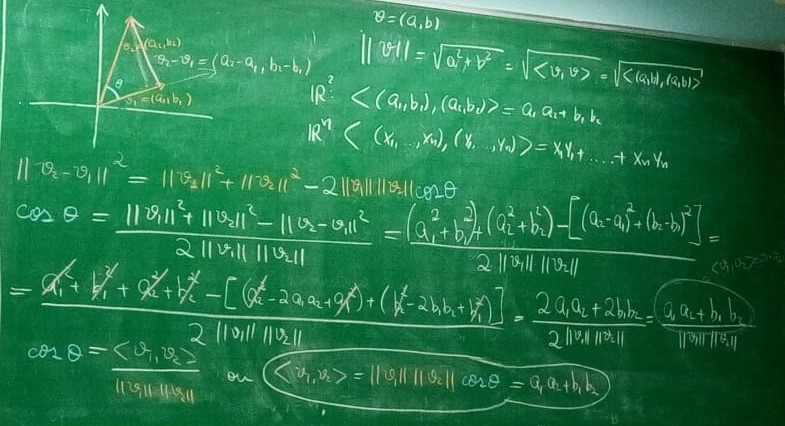 v = (a, b)
v₂ = (a₂, b₂)
v₂ - v₁ = (a₂ - a₁, b₂ - b₁)
θ
v₁ = (a₁, b₁)
||v|| = √(a² + b²) = √<v, v> = √<(a,b), (a,b)>
ℝ²: <(a₁, b₁), (a₂, b₂)> = a₁ a₂ + b₁ b₂
ℝⁿ: <(x₁, ..., xₙ), (y₁, ..., yₙ)> = x₁y₁ + .... + xₙyₙ
||v₂ - v₁||² = ||v₁||² + ||v₂||² - 2||v₁|| ||v₂|| cos θ
cos θ = (||v₁||² + ||v₂||² - ||v₂ - v₁||²) / (2 ||v₁|| ||v₂||) = ((a₁² + b₁²) + (a₂² + b₂²) - [(a₂ - a₁)² + (b₂ - b₁)²]) / (2 ||v₁|| ||v₂||) =
= (a₁² + b₁² + a₂² + b₂² - [(a₂² - 2a₁a₂ + a₁²) + (b₂² - 2b₁b₂ + b₁²)]) / (2 ||v₁|| ||v₂||) = (2a₁a₂ + 2b₁b₂) / (2 ||v₁|| ||v₂||) = (a₁a₂ + b₁b₂) / (||v₁|| ||v₂||)
cos θ = <v₁, v₂> / (||v₁|| ||v₂||) ou <v₁, v₂> = ||v₁|| ||v₂|| cos θ = a₁a₂ + b₁b₂